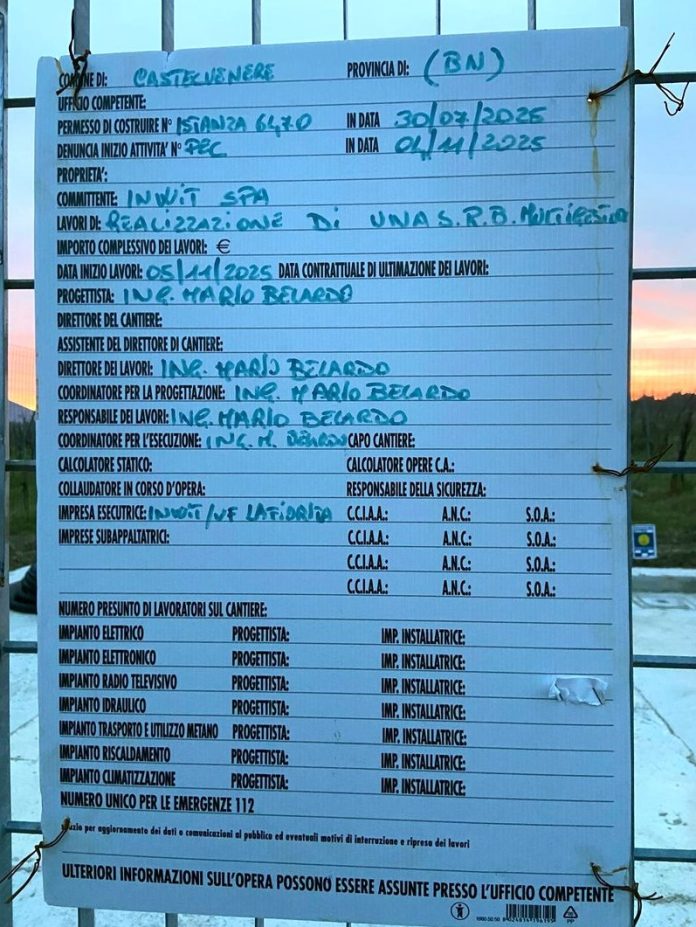 COMUNE DI: CASTELVENERE PROVINCIA DI: (BN)
UFFICIO COMPETENTE:
PERMESSO DI COSTRUIRE N° ISTANZA 6470 IN DATA 30/07/2025
DENUNCIA INIZIO ATTIVITA' N° PEC IN DATA 04/11/2025
PROPRIETA':
COMMITTENTE: INWIT SPA
LAVORI DI: REALIZZAZIONE DI UNA S.R.B. MULTIGESTORE
IMPORTO COMPLESSIVO DEI LAVORI: €
DATA INIZIO LAVORI: 05/11/2025 DATA CONTRATTUALE DI ULTIMAZIONE DEI LAVORI:
PROGETTISTA: ING. MARIO BELARDO
DIRETTORE DEL CANTIERE:
ASSISTENTE DEL DIRETTORE DI CANTIERE:
DIRETTORE DEI LAVORI: ING. MARIO BELARDO
COORDINATORE PER LA PROGETTAZIONE: ING. MARIO BELARDO
RESPONSABILE DEI LAVORI: ING. MARIO BELARDO
COORDINATORE PER L'ESECUZIONE: ING. M. BELARDO CAPO CANTIERE:
CALCOLATORE STATICO: CALCOLATORE OPERE C.A.:
COLLAUDATORE IN CORSO D'OPERA: RESPONSABILE DELLA SICUREZZA:
IMPRESA ESECUTRICE: INWIT/VF C.C.I.A.A.: A.N.C.: S.O.A.:
IMPRESE SUBAPPALTATRICI: C.C.I.A.A.: A.N.C.: S.O.A.:
C.C.I.A.A.: A.N.C.: S.O.A.:
C.C.I.A.A.: A.N.C.: S.O.A.:
NUMERO PRESUNTO DI LAVORATORI SUL CANTIERE:
IMPIANTO ELETTRICO PROGETTISTA: IMP. INSTALLATRICE:
IMPIANTO ELETTRONICO PROGETTISTA: IMP. INSTALLATRICE:
IMPIANTO RADIO TELEVISIVO PROGETTISTA: IMP. INSTALLATRICE:
IMPIANTO IDRAULICO PROGETTISTA: IMP. INSTALLATRICE:
IMPIANTO TRASPORTO E UTILIZZO METANO PROGETTISTA: IMP. INSTALLATRICE:
IMPIANTO RISCALDAMENTO PROGETTISTA: IMP. INSTALLATRICE:
IMPIANTO CLIMATIZZAZIONE PROGETTISTA: IMP. INSTALLATRICE:
NUMERO UNICO PER LE EMERGENZE 112
per aggiornamento dei dati e comunicazioni al pubblico ed eventuali motivi di interruzione e ripresa dei lavori
ULTERIORI INFORMAZIONI SULL'OPERA POSSONO ESSERE ASSUNTE PRESSO L'UFFICIO COMPETENTE
PP